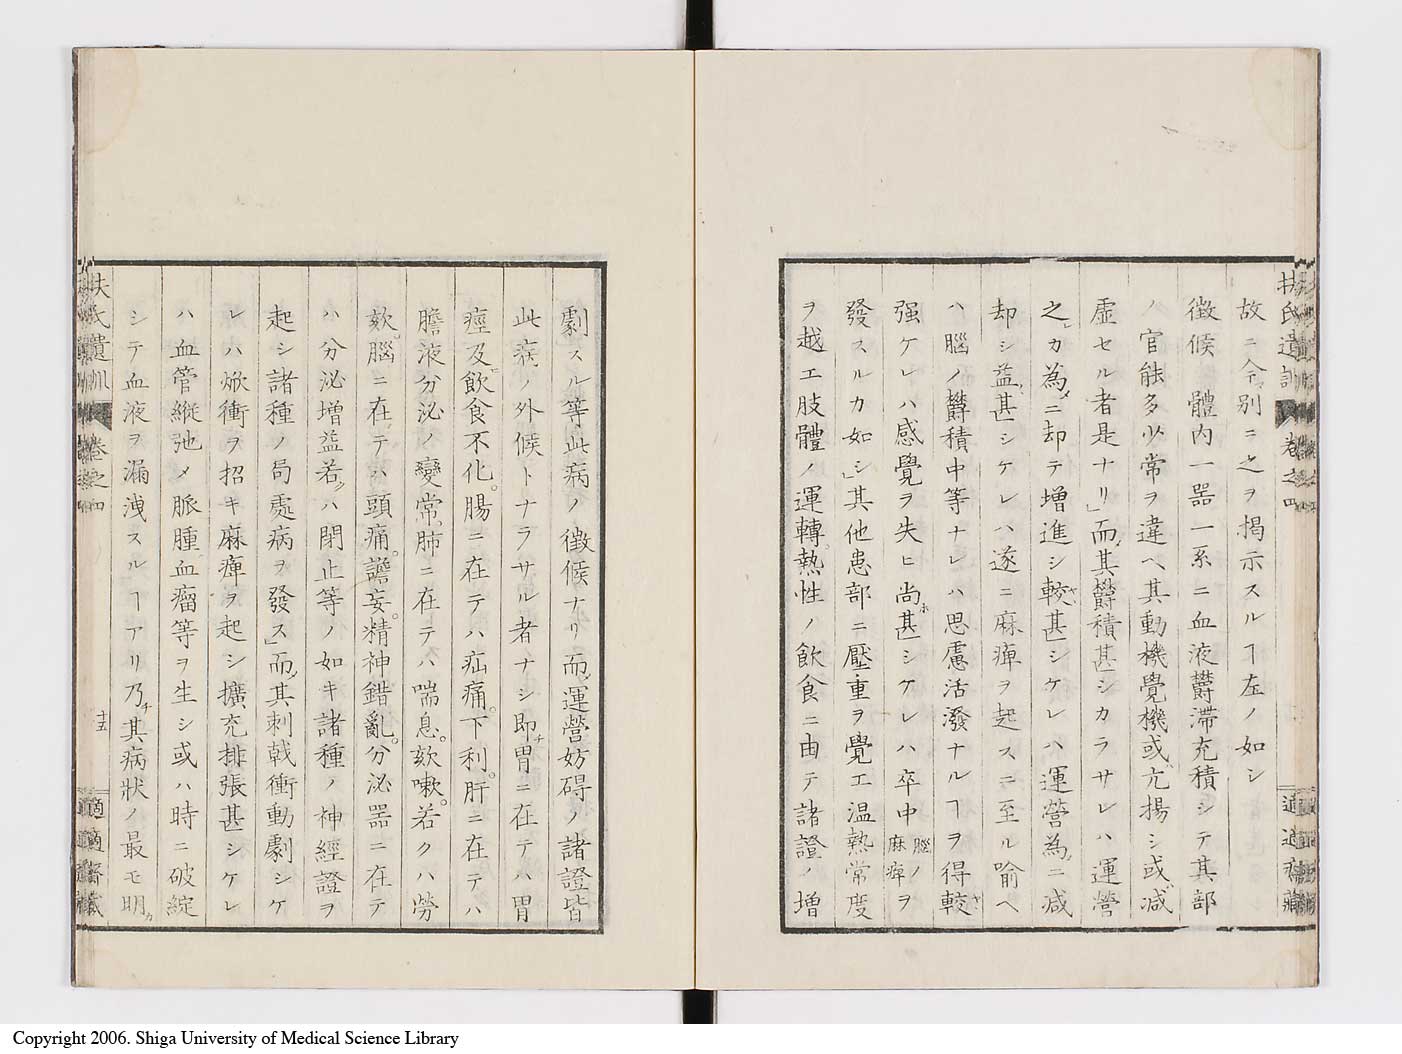 扶氏遺訓 卷之四
適適齋藏
故ニ今別ニ之ヲ揭示スルヿ左ノ如シ
徵候 體內一器一系ニ血液鬱滯充積シテ其部
ノ官能多少常ヲ違ヘ其動機覺機或ハ亢揚シ或ハ減
虛セル者是ナリ」而メ其鬱積甚シカラサレハ運營
之レカ為メニ却テ增進シ較ヤ甚シケレハ運營為メニ減
却シ益甚シケレハ遂ニ麻痺ヲ起スニ至ル喻ヘ
ハ腦ノ鬱積中等ナレハ思慮活潑ナルヿヲ得較ヤ
强ケレハ感覺ヲ失ヒ尚ホ甚シケレハ卒中腦ノ麻痺ヲ
發スルカ如シ」其他患部ニ壓重ヲ覺エ溫熱常度
ヲ越エ肢體ノ運轉熱性ノ飮食ニ由テ諸證ノ增
劇スル等此病ノ徵候ナリ而メ運營妨碍ノ諸證皆
此病ノ外候トナラサル者ナシ即チ胃ニ在テハ胃
痙及ヒ飮食不化。腸ニ在テハ疝痛。下利。肝ニ在テハ
膽液分泌ノ變常。肺ニ在テハ喘息。欬嗽。若クハ勞
欬。腦ニ在テハ頭痛。譫妄。精神錯亂。分泌器ニ在テ
ハ分泌增益若クハ閉止等ノ如キ諸種ノ神經證ヲ
起シ諸種ノ局處病ヲ發ス」而メ其刺戟衝動劇シケ
レハ焮衝ヲ招キ麻痺ヲ起シ擴充排張甚シケレ
ハ血管縱弛メ脈腫血瘤等ヲ生シ或ハ時ニ破綻
シテ血液ヲ漏洩スルヿアリ乃チ其病狀ノ最モ明カ
扶氏遺訓 卷之四
十五
適適齋藏
Copyright 2006. Shiga University of Medical Science Library